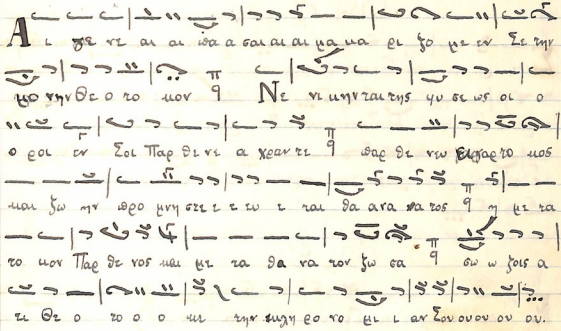 Α ι γε νε αι αι πα α σαι αι αι μα κα ρι ζο με εν Σε την
μο νην Θε ο το κον Νε νι κην ται της φυ σε ως οι ο
ο ροι εν Σοι Παρ θε νε α χραν τε παρ θε νευ ει γαρ το κος
και ζω ην προ μνη στε ε ε ευ ε ται θα ανα να τος η με τα
το κον Παρ θε νος και με τα θα να τον ζω σα σω ω ζοις α
ει Θε ο το ο ο κε την κλη ρο νο μι ι αν Σου ου ου ου ου.